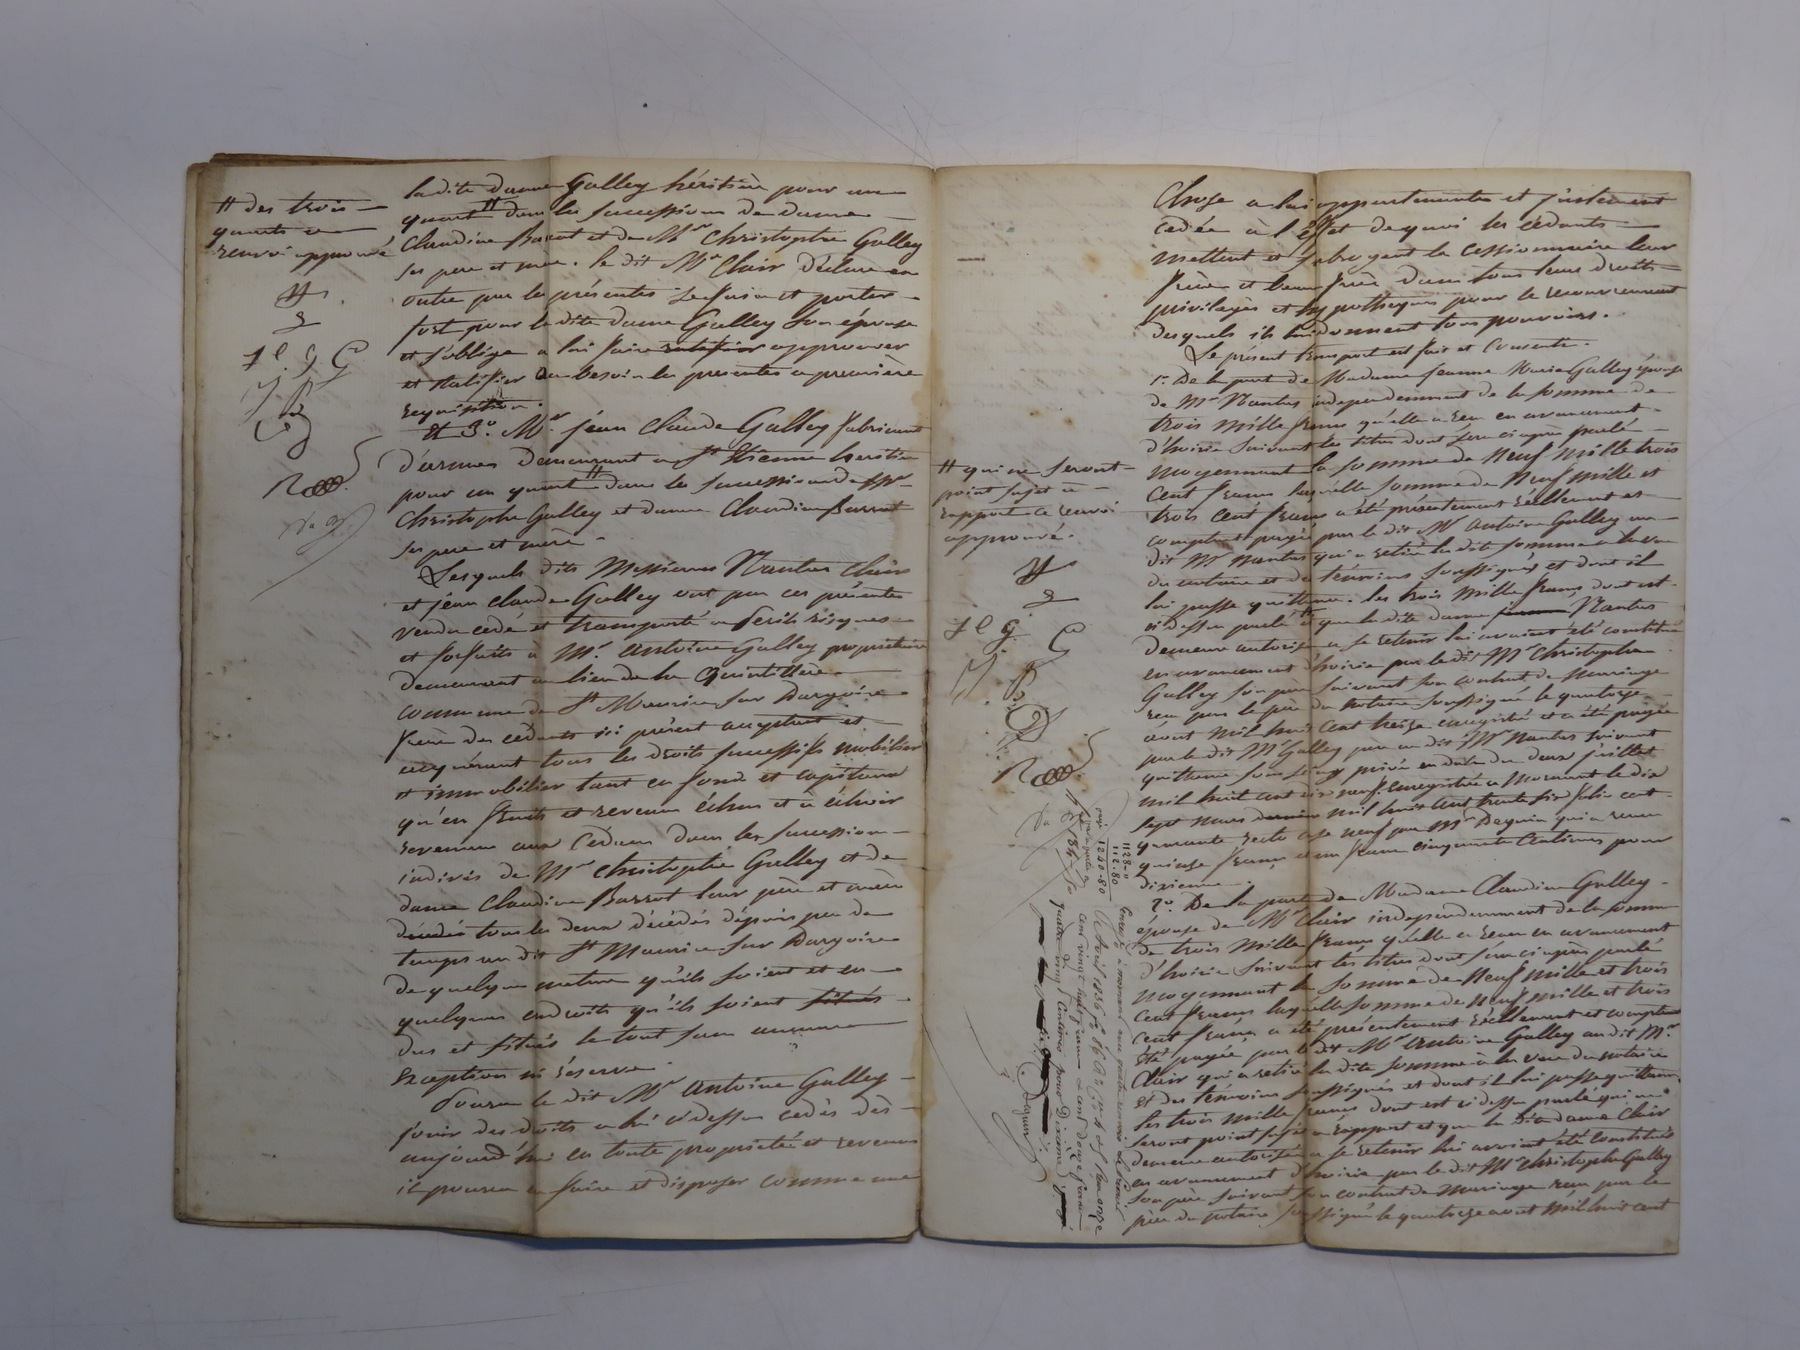 # des trois
quarts ce
renvoi approuvé
la dite dame Galley héritière pour un
quart # dans les successions de dame
Claudine Barrot et de Mr Christophe Galley
ses pere et mere. le dit Mr Clair déclare en
outre par les présentes se faire et porter
fort pour la dite dame Galley son épouse
et s'oblige a lui faire ratifier approuver
et ratifier au besoin les presentes a première
requisition.
Et 3° Mr jean Claude Galley fabricant
d'armes demeurant a St Etienne heritier
pour un quart # dans les successions de Mr
Christophe Galley et dame Claudine Barrot
ses pere et mère.
Lesquels dits Messieurs Nantas Clair
et jean Claude Galley ont par ces présentes
vendu cedé et transporté a périls risques
et forfaits a Mr antoine Galley propriétaire
demeurant au lieu de la Quintillère
commune de St Maurice sur Dargoire
frère des cédants ici présent acceptant et
acquérant tous les droits successifs mobilier
et immobilier tant en fond et capitaux
qu'en fruits et revenus échus et a échoir
revenant aux Cedans dans les succession
indivis de Mr Christophe Galley et de
dame Claudine Barrot leur père et mère
décédés tous les deux décédés dépuis peu de
temps au dit St Maurice sur Dargoire
de quelque nature qu'ils soient et en
quelques endroits qu'ils soient situés
dus et situés le tout sans aucune
exception ni réserve.
Pourra le dit Mr Antoine Galley
jouir des droits a lui ci dessus cédés dès
aujourd'hui en toute propriété et revenus
il pourra en faire et disposer comme une
# qui ne seront
point sujet a
rapport ce renvoi
approuvé.
Chose a lui appartenante et justement
cédée à l'effet de quoi les cédants
mettent et subrogent le cessionnaire leur
frère et beau frère dans tous leurs droits
privilèges et hypotheques pour le recouvrement
desquels ils lui donnent tous pouvoirs.
Le présent transport est fait et Consenti.
1° De la part de Madame Jeanne Marie Galley épouse
de Mr Nantas independemment de la somme de
trois mille francs qu'elle a reçu en avancement
d'hoirie suivant les titres dont sera ciaprès parlé
moyennant la somme de Neuf mille trois
Cent francs laquelle somme de Neuf mille et
trois Cent francs a été présentement réellement et
comptant payée par le dit Mr Antoine Galley au
dit Mr Nantas qui a retiré la dite somme a la vue
du notaire et des témoins soussignés et dont il
lui passe quittance. les trois mille francs dont est
ci dessus parlé # et que la dite dame Nantas
demeure autorisée a se retenir lui avaient été constitué
en avancement d'hoirie par le dit Mr Christophe
Galley son père suivant son contrat de Mariage
reçu par le père du notaire soussigné le quatorze
avout mil huit cent treize enregistré et a été payée
par le dit Mr Galley père au dit Mr Nantas suivant
quittance sous seing privé en date du deux juillet
mil huit cent dix neuf enregistrée a Mornant le dix
sept mars dernier mil huit cent trente six folio cent
quarante recto case neuf par Mr Deguin qui a reçu
quinze francs et un franc cinquante Centimes pour
dixieme.
2° De la part de Madame Claudine Galley
épouse de Mr Clair independemment de la somme
de trois mille francs qu'elle a reçu en avancement
d'hoirie suivant les titres dont sera ciaprès parlé
moyennant la somme de Neuf mille et trois
Cent francs laquelle somme de Neuf mille et trois
Cent francs a été présentement réellement et comptant
été payée par le dit Mr Antoine Galley au dit Mr
Clair qui a retiré la dite somme à la vue du notaire
et des témoins soussignés et dont il lui passe quittance
les trois mille francs dont est ci dessus parlé qui ne
seront point sujet a rapport et que la dite dame Clair
demeure autorisée a se retenir lui avaient été constitués
en avancement d'hoirie par le dit Mr Christophe Galley
son père suivant son contrat de Mariage reçu par le
père du notaire soussigné le quatorze avout mil huit cent
1128 "
112.80
1240-80
cent vingt huit francs
quatre vingt Centimes pour Dixième
Deguin